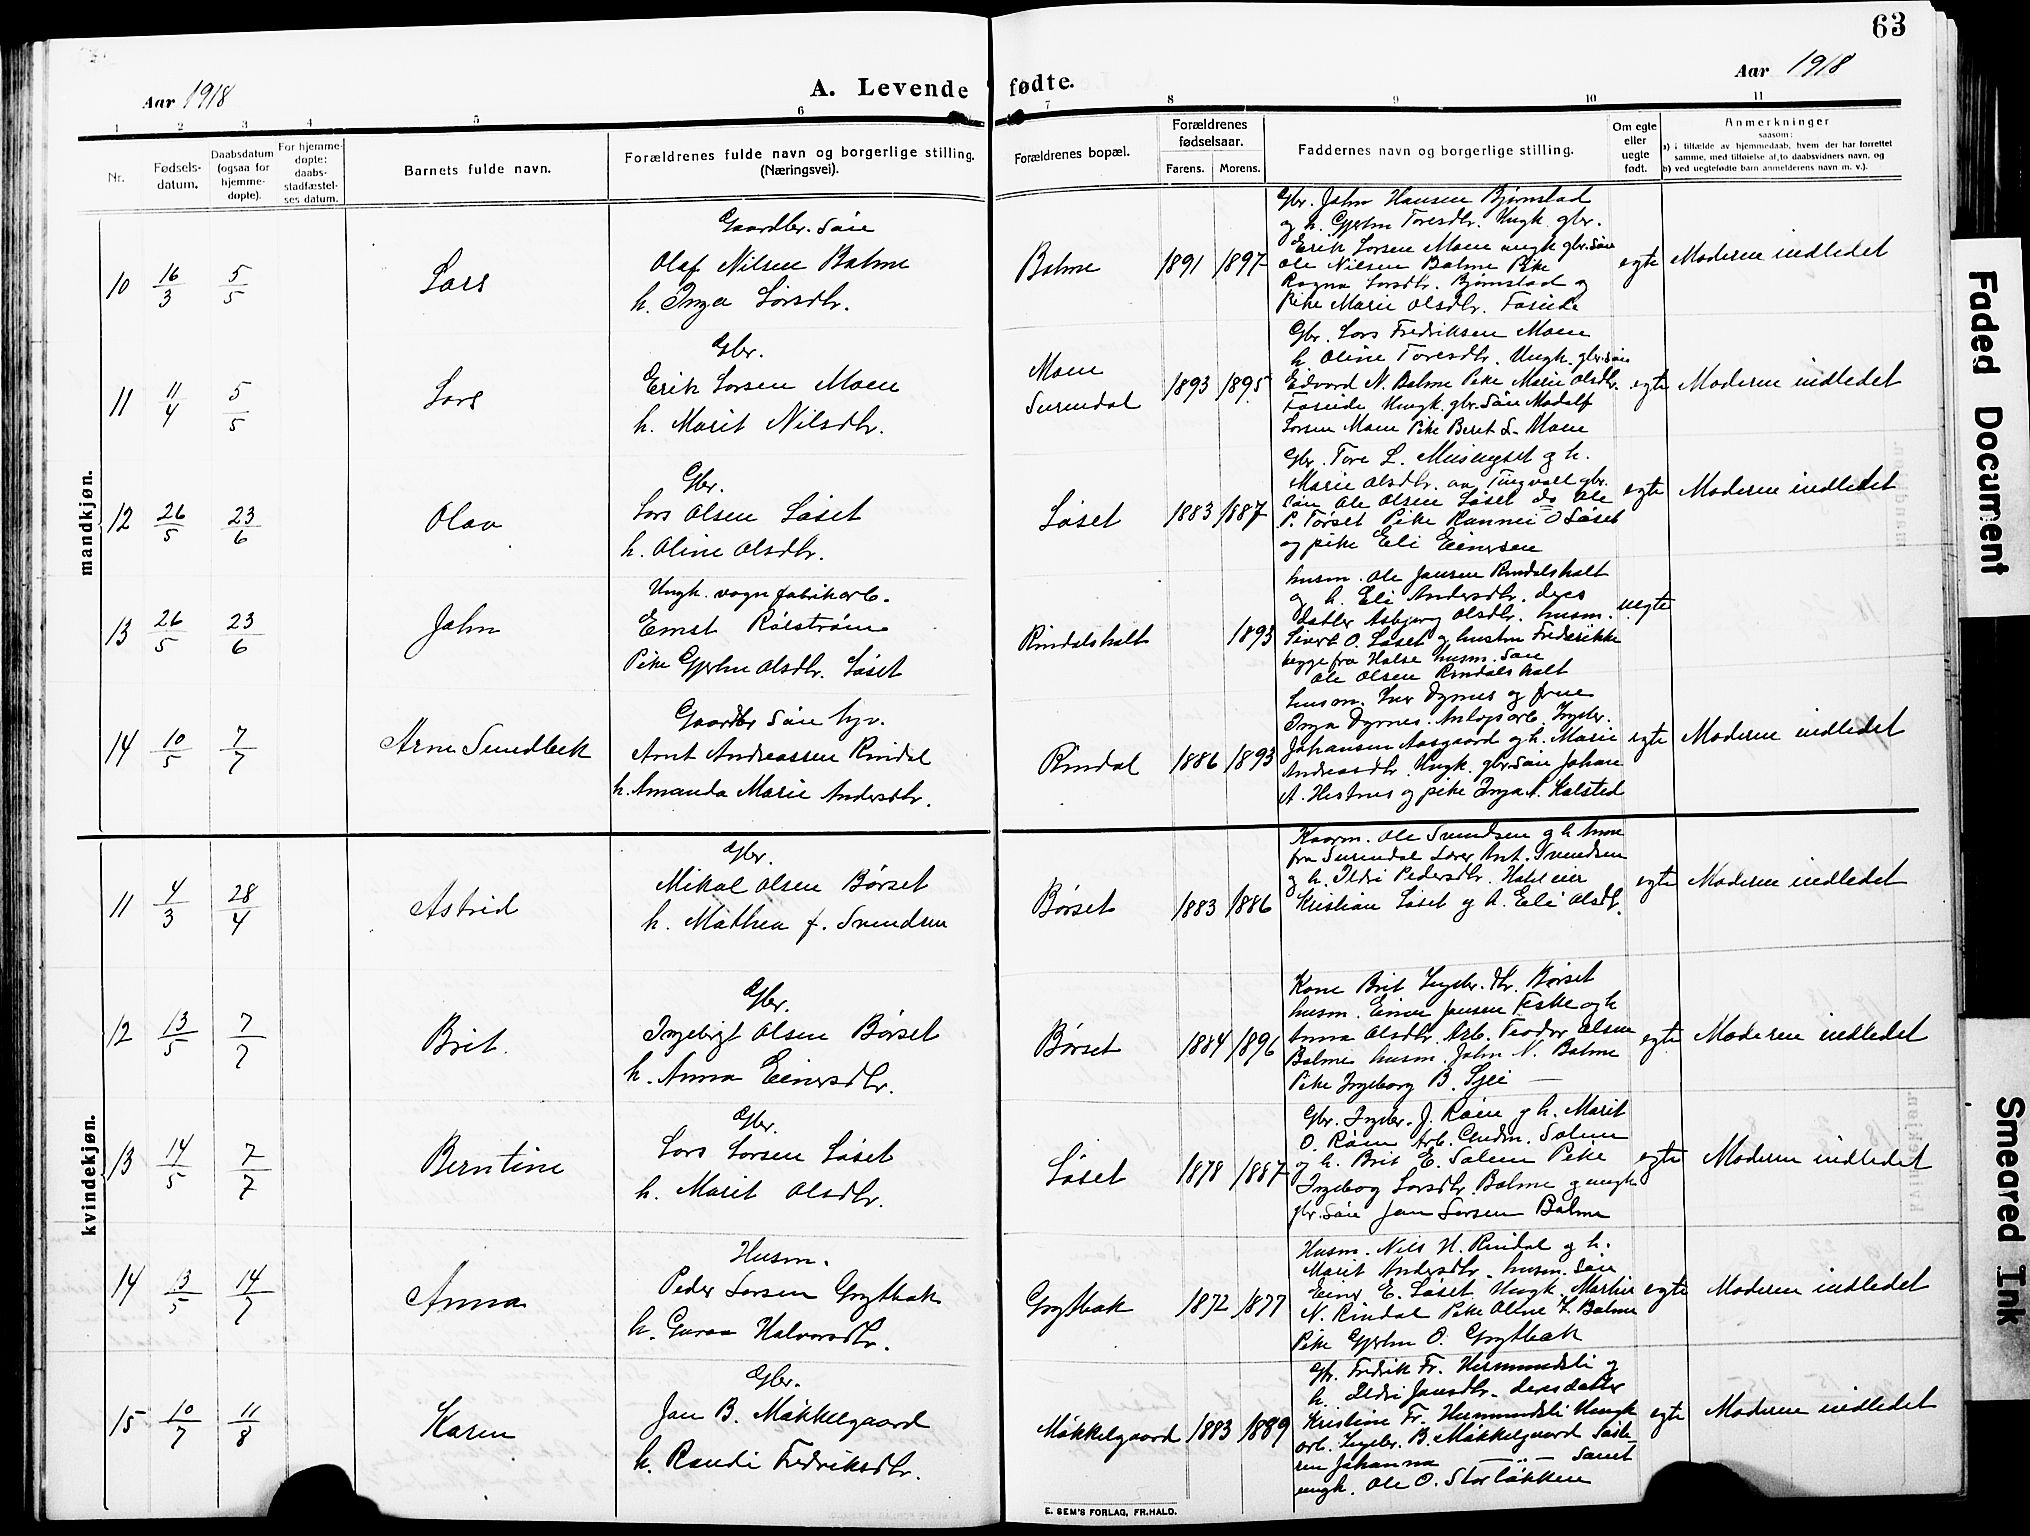 63
Aar 1918
A. Levende fødte.
Aar 1918
1 2 3 4 5 6 7 8 9 10 11
Nr.
Fødsels-
datum.
Daabsdatum
(ogsaa for
hjemme-
døpte).
For hjemme-
døpte:
daabs-
stadfæstel-
ses datum.
Barnets fulde navn.
Forældrenes fulde navn og borgerlige stilling.
(Næringsvei).
Forældrenes bopæl.
Forældrenes
fødselsaar.
Farens. Morens.
Faddernes navn og borgerlige stilling.
Om egte
eller
uegte
født.
Anmerkninger
saasom:
a) i tilfælde av hjemmedaab, hvem der har forrettet
samme, med tilføielse af to daabsvidners navn, og
b) ved uegtefødte barn anmelderens navn m. v.).
mandkjøn.
10 16/3 5/5 Lars
Gaardbr. Søn
Olaf Nilsen Bolme
h. Inga Larsdtr.
Bolme 1891 1897
Gbr. John Hansen Bjørnstad
og h. Gjertru Toresdtr. Ungk. gbr.
Erik Larsen Moen ungk. gbr. søn
Ole Nilsen Bolme Pike
Ragna Larsdtr. Bjørnstad og
Pike Marie Olsdtr.
egte Moderen indledet
11 11/4 5/5 Lars
Gbr.
Erik Larsen Moen
h. Marit Nilsdtr.
Moen
Surendal
1893 1895
Gbr. Lars Fredriksen Moen
h. Oline Toresdtr. Ungk. gbr. søn
Edvard N. Bolme Pike Marie Olsdtr.
Ungk. gbr. søn Modolf
Larsen Moen Pike Beret L. Moen
egte Moderen indledet
12 26/5 23/6 Olav
Gbr.
Lars Olsen Løset
h. Oline Olsdtr.
Løset 1883 1887
Gbr. Tore L. og h.
Marie Olsdtr. av Tingvoll gbr.
søn Ole Olsen Løset do Ole
P. Tørset Pike Rannei O Løset
og pike Eli Einersen
egte Moderen indledet
13 26/5 23/6 John
Ungk. vogn fabrikarb.
Ernst Rølstrøm
Pike Gjertru Olsdtr. Løset
Rindalsholt 1893
husm. Ole Jansen Rindalsholt
og h. Eli Andersdtr. deres
datter Asbjørg Olsdtr. husm.
Sivert O. Løset og hustru Frederikke
begge fra Halse husm. søn
Ole Olsen Rindalsholt
uegte
14 10/5 7/7 Arne Sundbek
Gaardbr søn
Arnt Andreassen Rindal
h. Amanda Marie Andersdtr.
Rindal 1886 1893
husm. Iver Dyrnes og frue
Inga Dyrnes. Anlegsarb. Ingebr.
Johansen Aasgaard og h. Marie
Andreasdtr. Ungk. gbr. søn Johan
A. Hestnes og pike Inga A. Kalsted
egte Moderen indledet
kvindekjøn.
11 4/3 28/4 Astrid
Gbr.
Mikal Olsen Børset
h. Mathea f. Svendsen
Børset 1883 1886
Kaarm. Ole Svendsen og h Anne
fra Surendal Lærer Ant. Svendsen
og h. Ildri Pedersdtr.
Kristian Løset og h. Eli Olsdtr.
egte Moderen indledet
12 13/5 7/7 Brit.
Gbr.
Ingebrigt Olsen Børset
h. Anna Einersdtr.
Børset 1884 1896
Kone Brit Ingebr.dtr. Børset
husm. Einer Jansen Feske og h
Anna Olsdtr. Arb. Teodor Olsen
Bolme husm. John N. Bolme
Pike Ingeborg B. —
egte Moderen indledet
13 14/5 7/7 Berntine
Gbr.
Lars Larsen Løset
h. Marit Olsdtr.
Løset 1878 1887
Gbr. Ingebr. J. Røen og h. Marit
O. Røen Arb. Gudm. Solem
og h. Brit E. Solem Pike
Ingeborg Larsdtr. Bolme og ungk
gbr. søn Jan Larsen Bolme
egte Moderen indledet
14 13/5 14/7 Anna
Husm.
Peder Larsen Grytbak
h. Guroa Halvorsdtr.
Grytbak 1872 1877
Husm. Nils H. Rindal og h.
Marit Andersdtr. husm. søn
Einer E. Løset Ungk. Martin
N. Rindal Pike Oline L. Bolme
Pike Gjertru O. Grytbak
egte Moderen indledet
15 10/7 11/8 Karen
Gbr.
Jan B. Møkkelgaard
h. Randi Fredriksdtr.
Møkkelgaard 1883 1889
Gbr. Fredrik Fr. Hermundsli og
h. Ildri Jansdtr. deres datter
Kristine Fr. Hermundsli Ungk
arb. Ingebr. B. Møkkelgaard Søste-
ren Johanna — „ — Samt
ungk. Ole O. Storløkken
egte Moderen indledet
E. SEM'S FORLAG, FR.HALD.
Faded Document
Smeared Ink